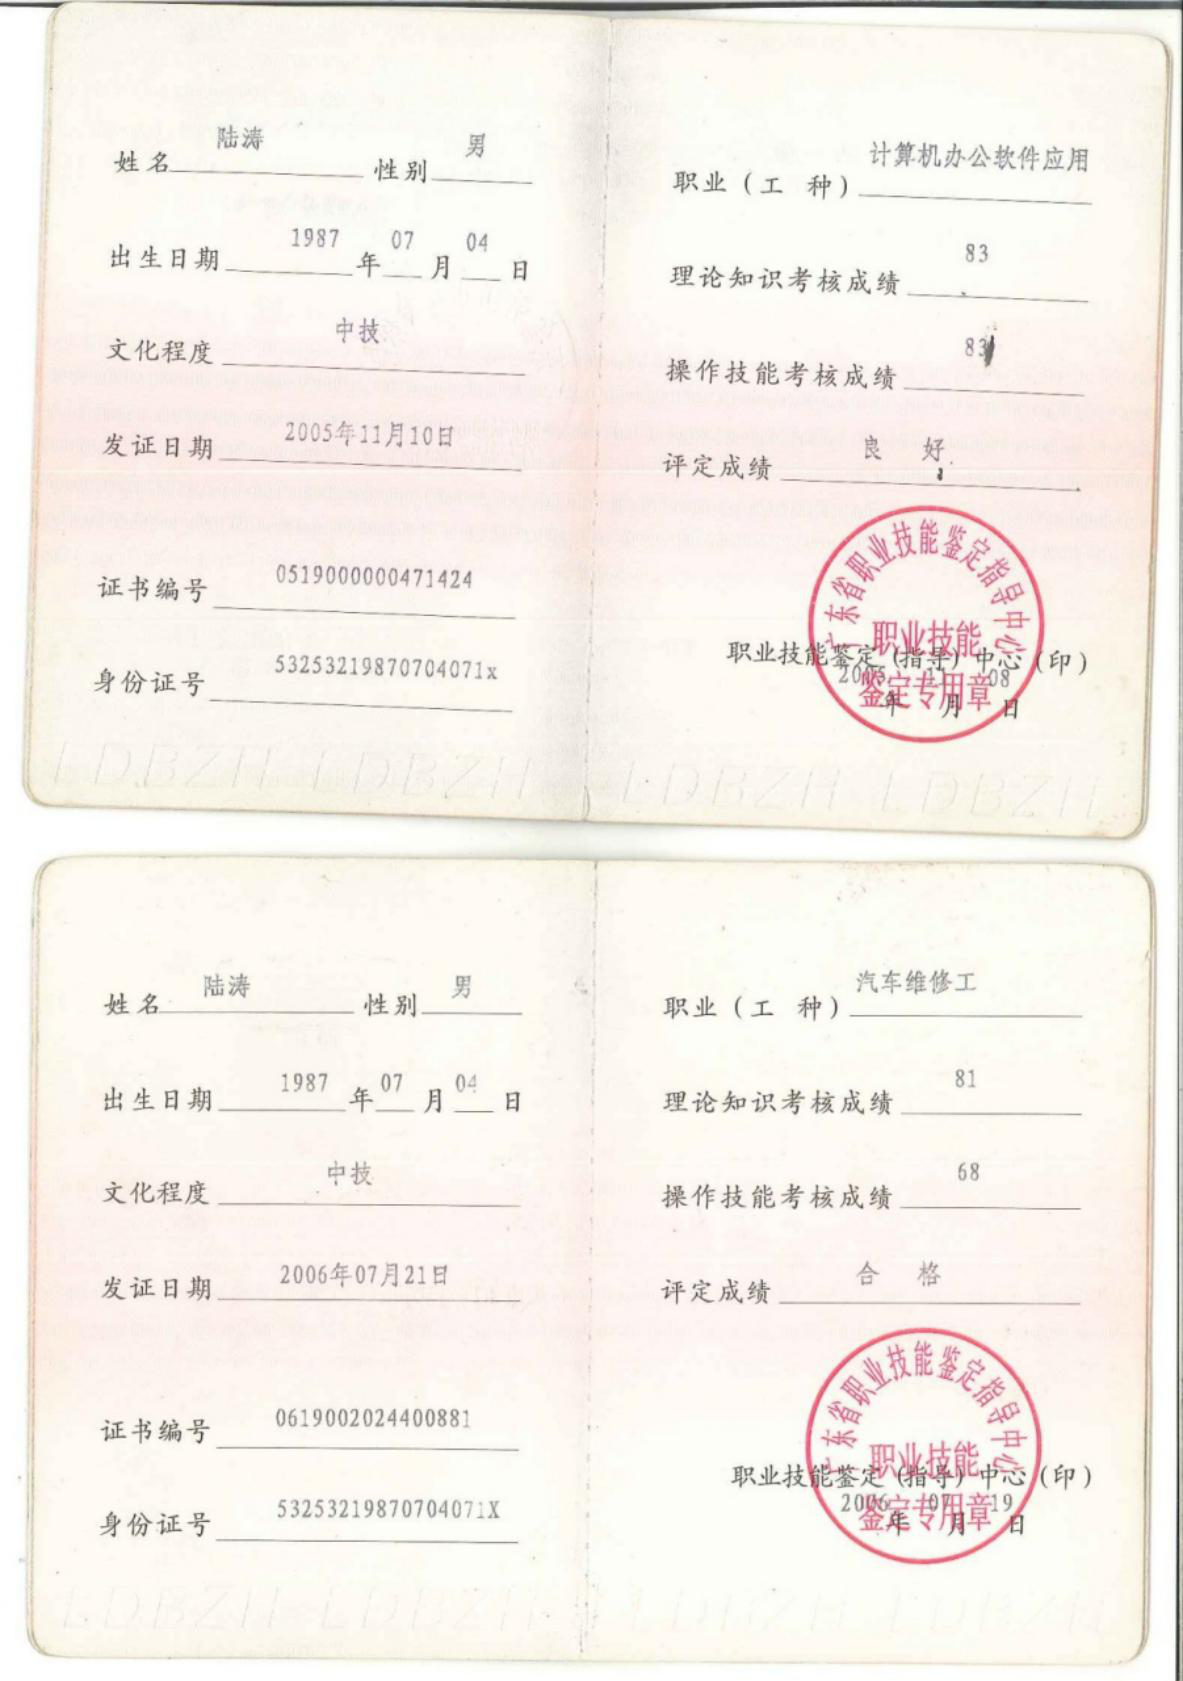 姓名 陆涛 性别 男
出生日期 1987 年 07 月 04 日
文化程度 中技
发证日期 2005年11月10日
证书编号 0519000000471424
身份证号 53253219870704071x
职业（工 种） 计算机办公软件应用
理论知识考核成绩 83
操作技能考核成绩 83
评定成绩 良 好
广东省职业技能鉴定指导中心
职业技能
鉴定专用章
职业技能鉴定（指导）中心（印）
2005 年 11 月 08 日
LDBZH LDBZH LDBZH LDBZH
姓名 陆涛 性别 男
出生日期 1987 年 07 月 04 日
文化程度 中技
发证日期 2006年07月21日
证书编号 0619002024400881
身份证号 53253219870704071X
职业（工 种） 汽车维修工
理论知识考核成绩 81
操作技能考核成绩 68
评定成绩 合 格
广东省职业技能鉴定指导中心
职业技能
鉴定专用章
职业技能鉴定（指导）中心（印）
2006 年 07 月 19 日
LDBZH LDBZH LDBZH LDBZH